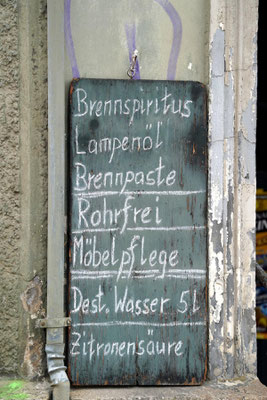 Brennspiritus
Lampenöl
Brennpaste
Rohrfrei
Möbelpflege
Dest. Wasser 5l
Zitronensäure